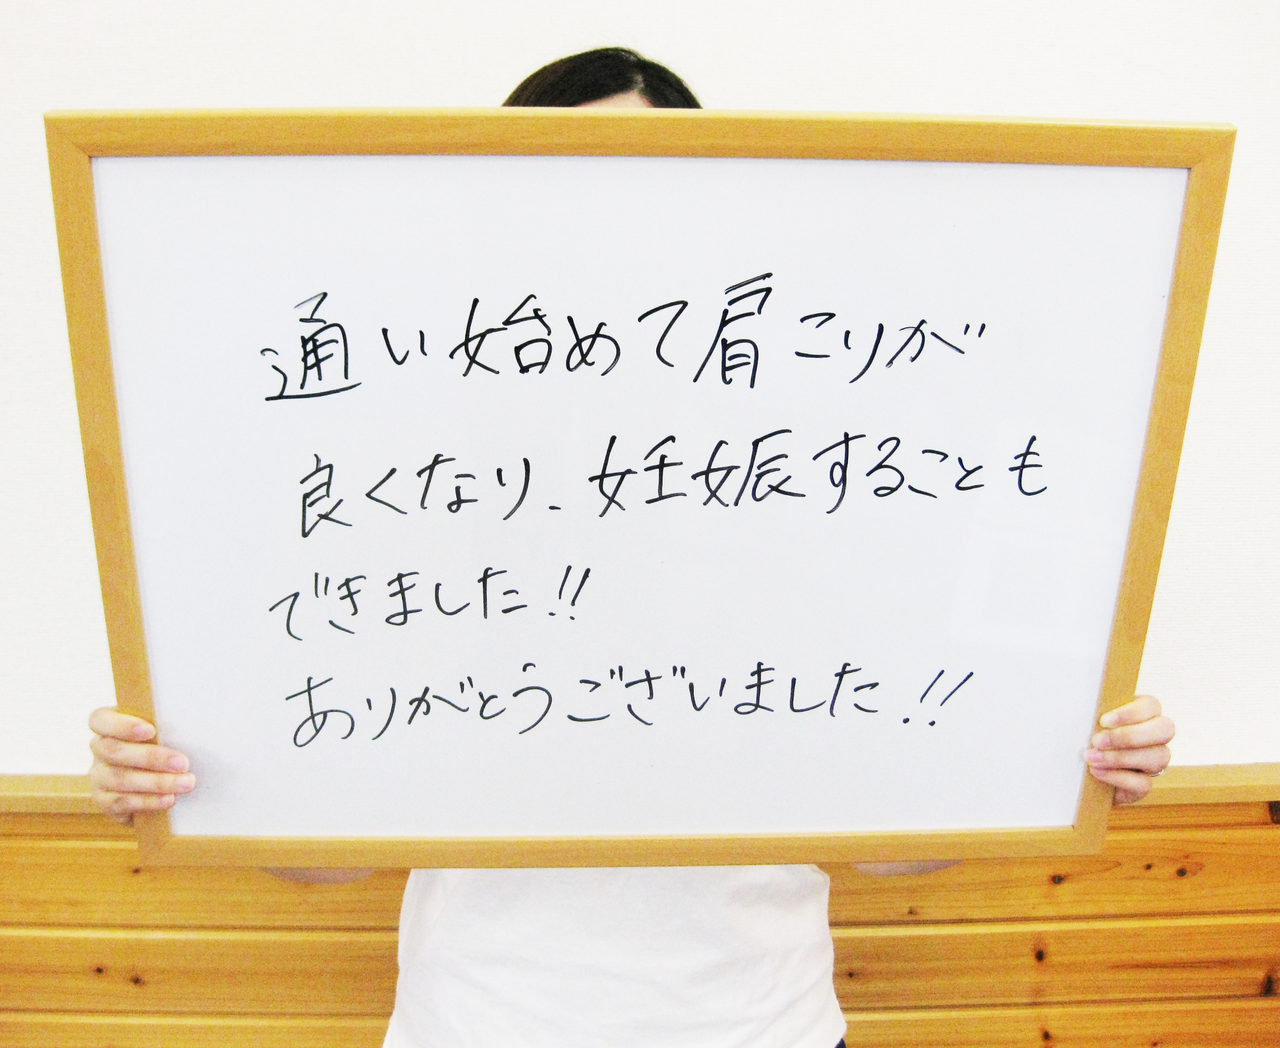 通い始めて肩こりが
良くなり、妊娠することも
できました!!
ありがとうございました!!